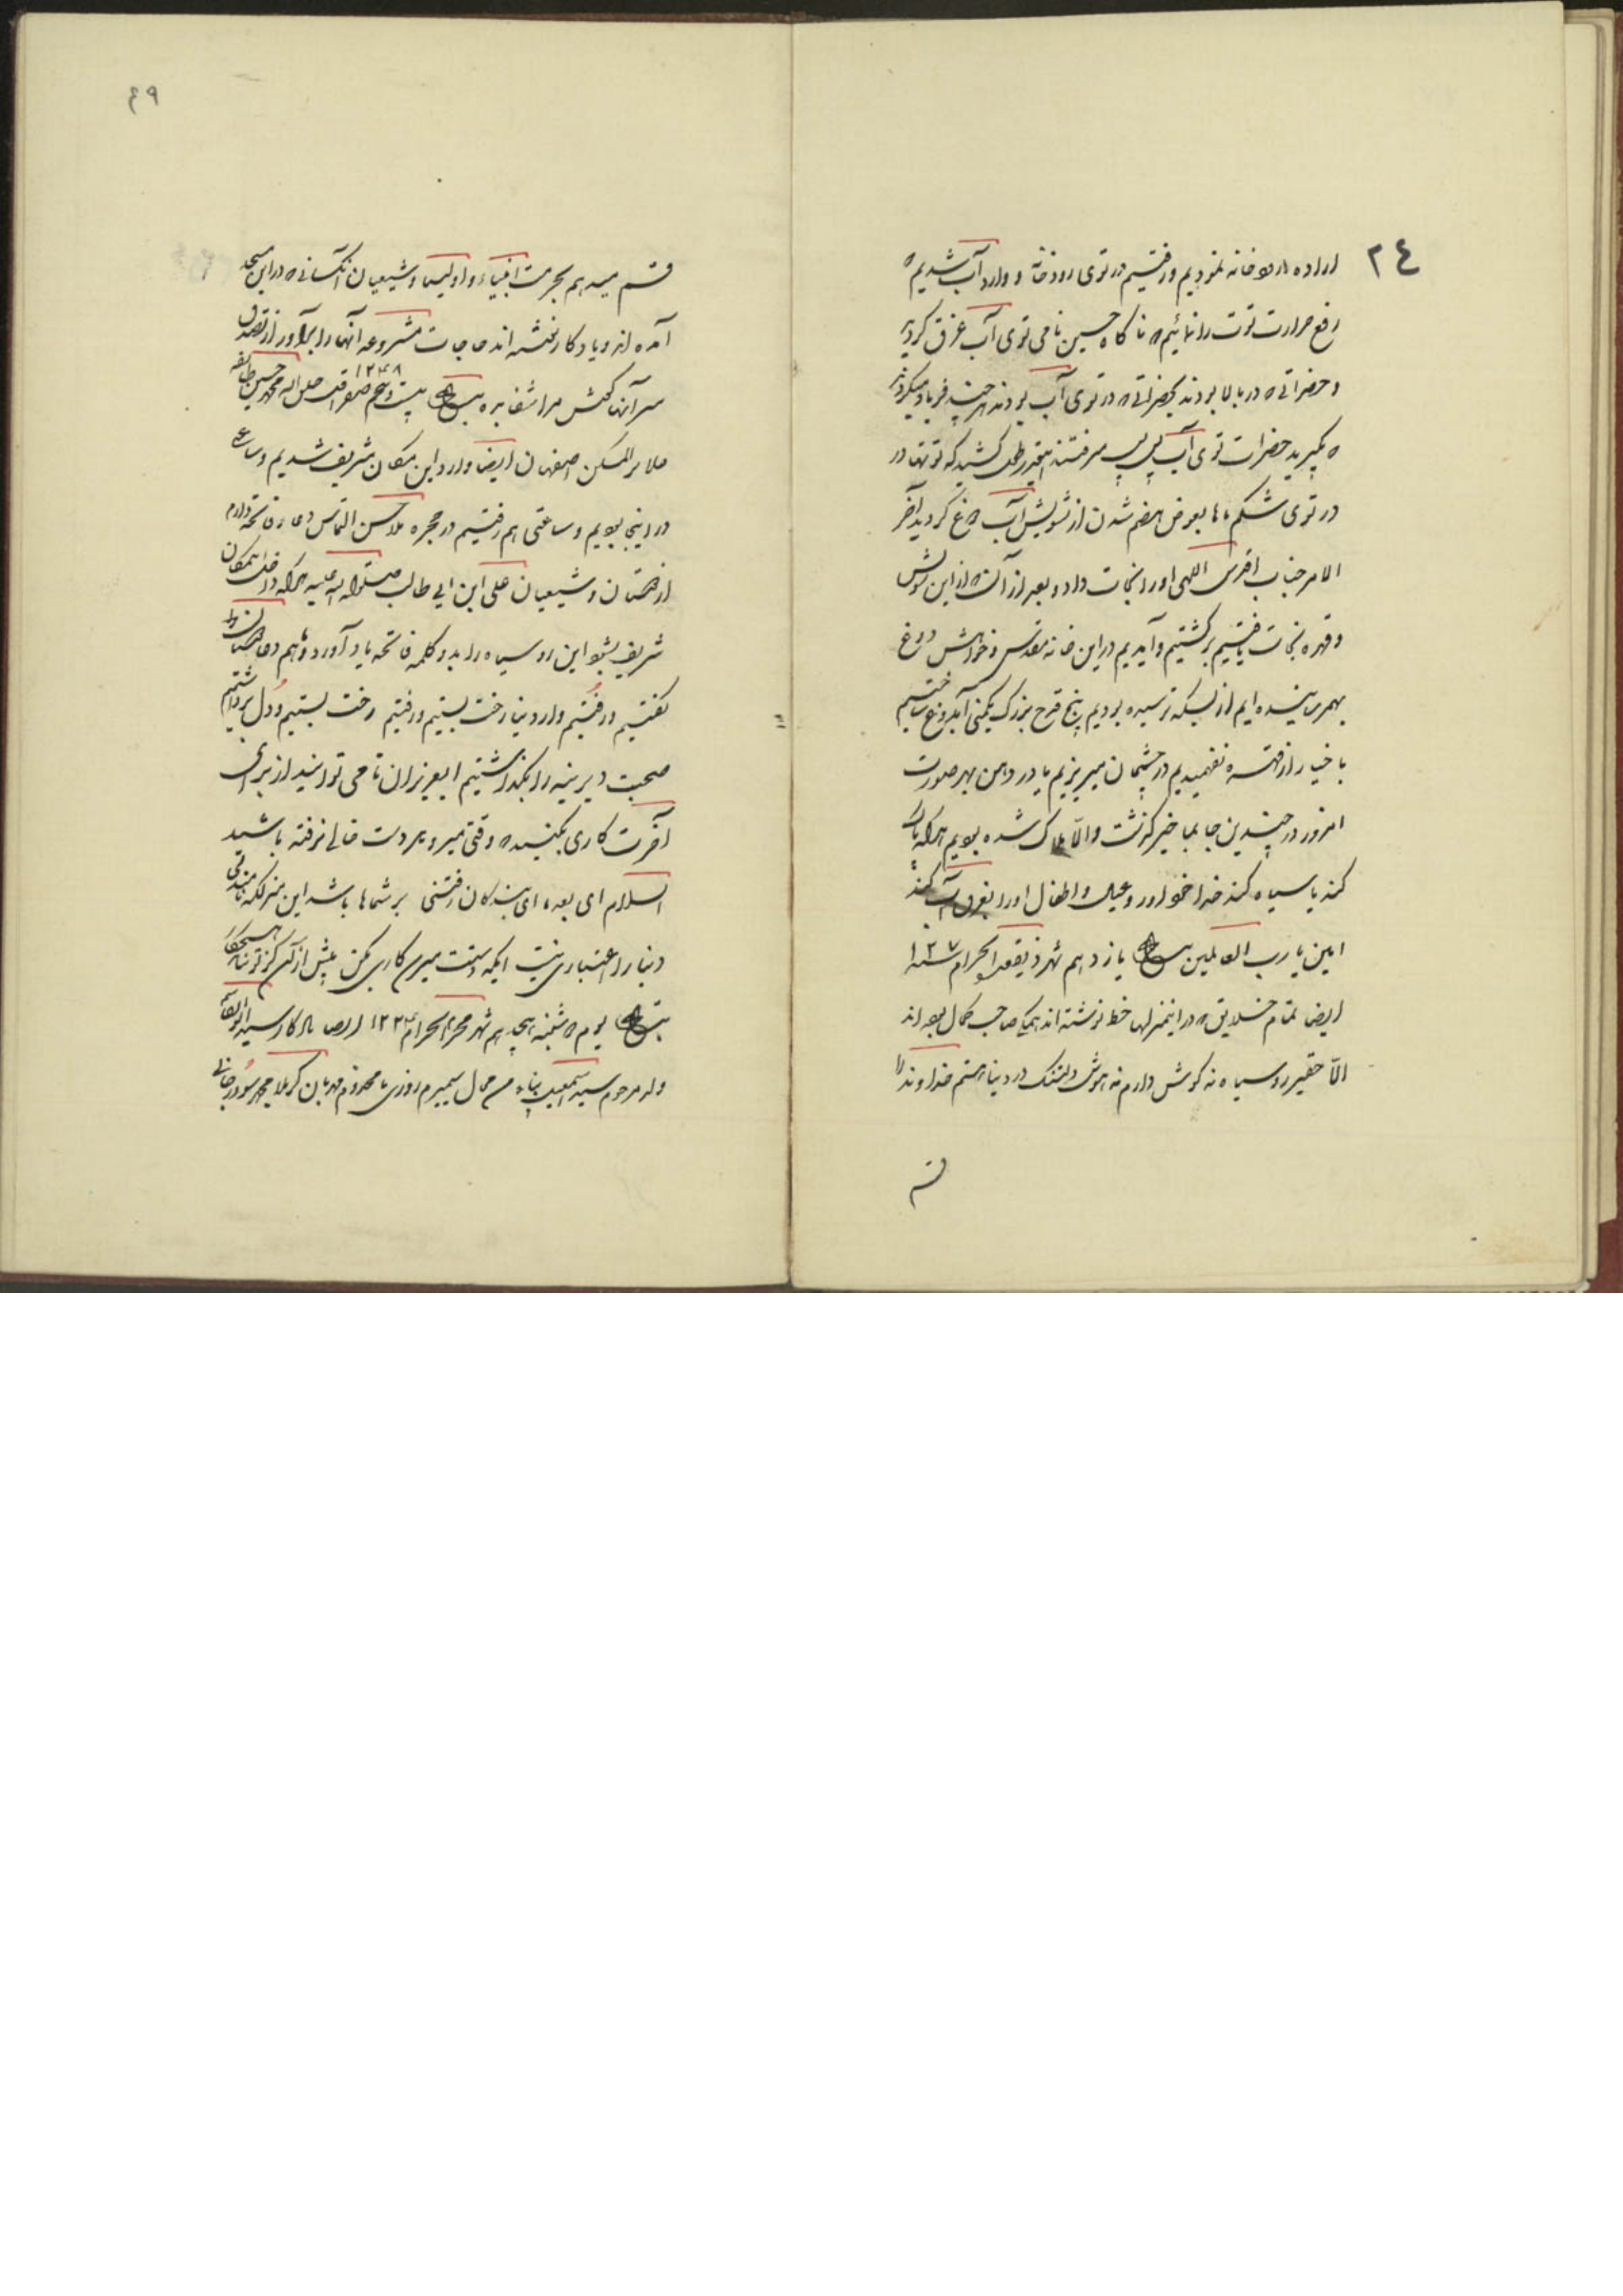 ٢٤
اراده رودخانه نمودیم و رفتیم در توی رودخانه و وارد آب شدیم که
رفع حرارت توت را نمائیم که ناگاه حسین نامی توی آب غرق گردید
و حضراتی که در بالا بودند بحضراتی که در توی آب بودند هر چند فریاد میکردند
که بگیرید حضرات توی آب پس پس میرفتند اینقدر طول کشید که توتها در
در توی شکم ماها بعوض هضم شدن از تشویش آب دوغ گردید آخر
الامر جناب اقدس اللهی او را نجات داد و بعد از آن که از این تشویش
و قهوه نجات یافتیم برگشتیم و آمدیم در این خانه مقدس و خواهش دوغ
بهمرسانیده ایم از بسکه ترسیده بودیم پنج قدح بزرگ یکمنی آبدوغ ساختیم
با خیار از قهر که نفهمیدیم در چشمان میریزیم یا در دهن بهر صورت
امروز در چندین جا بما خیر گذشت والّا هلاک شده بودیم هر که پاک
کند یا سیاه کند خدا خود او را و عیال و اطفال او را بغرق آب کند
امین یا رب العالمین بتاریخ یازدهم شهر ذیقعدة الحرام سنه ١٢٧
ایضا تمام خلایق که در اینمنزلها خط نوشته اند همگی صاحب کمال بوده اند
الّا حقیر روسیاه نه گوش دارم نه هوش دلتنگ در دنیا هستم خداوندا
قسم
٤٩
قسم میدهم بحرمت انبیاء و اولیاء و شیعیان آنکسانی که در این مسجد
آمده اند و یادگار نوشته اند حاجات مشروعه آنها را برآور از تصدق
سر آنها کشش مرا شفا بده بتاریخ بیست و پنجم صفر ١٢٤٨ اقل محمد حسین
ملایر المسکن اصفهان ایضا وارد این مکان شریف شدیم و ساعتی
در اینجا بودیم و ساعتی هم رفتیم در حجره ملا حسن التماس دعا و فاتحه دارم
از دوستان و شیعیان علی ابن ابی طالب صلوات الله علیه هر که داخل اینمکان
شریف بشود این روسیاه را بدو کلمه فاتحه یاد آورد ما هم
گفتیم و رفتیم وارد دنیا رخت بستیم و رفتیم رخت بستیم و دل برداشتیم
صحبت دیرینه را بگذاشتیم ایعزیزان تا می توانید از برای
آخرت کاری بکنید که وقتی میروید دست خالی نرفته باشید
السلام ای بعد ما ای بندگان رفتنی بر شماها باشد این منزلگه نا ماندنی
دنیا را اعتباری نیست ایکه دستت میرسد کاری بکن پیش از آن کز تو نیاید هیچکار
بتاریخ یوم شنبه هیجدهم شهر محرم الحرام ١٢٣٤ سید ابوالقاسم
ولد مرحوم سید اسمعیل بناء من محال سمیرم روزی با مخدوم مهربان کربلا محمد